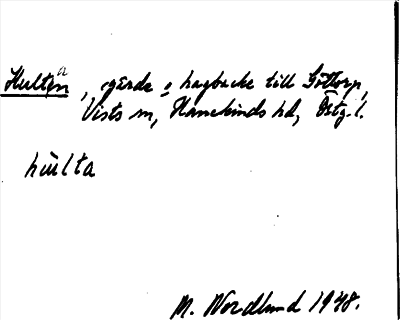 Hulten a, gärde o hagbacke till Göttorp,
Vists sn, Hanekinds hd, Östg. l.
hùlta
M. Nordlund 1948.